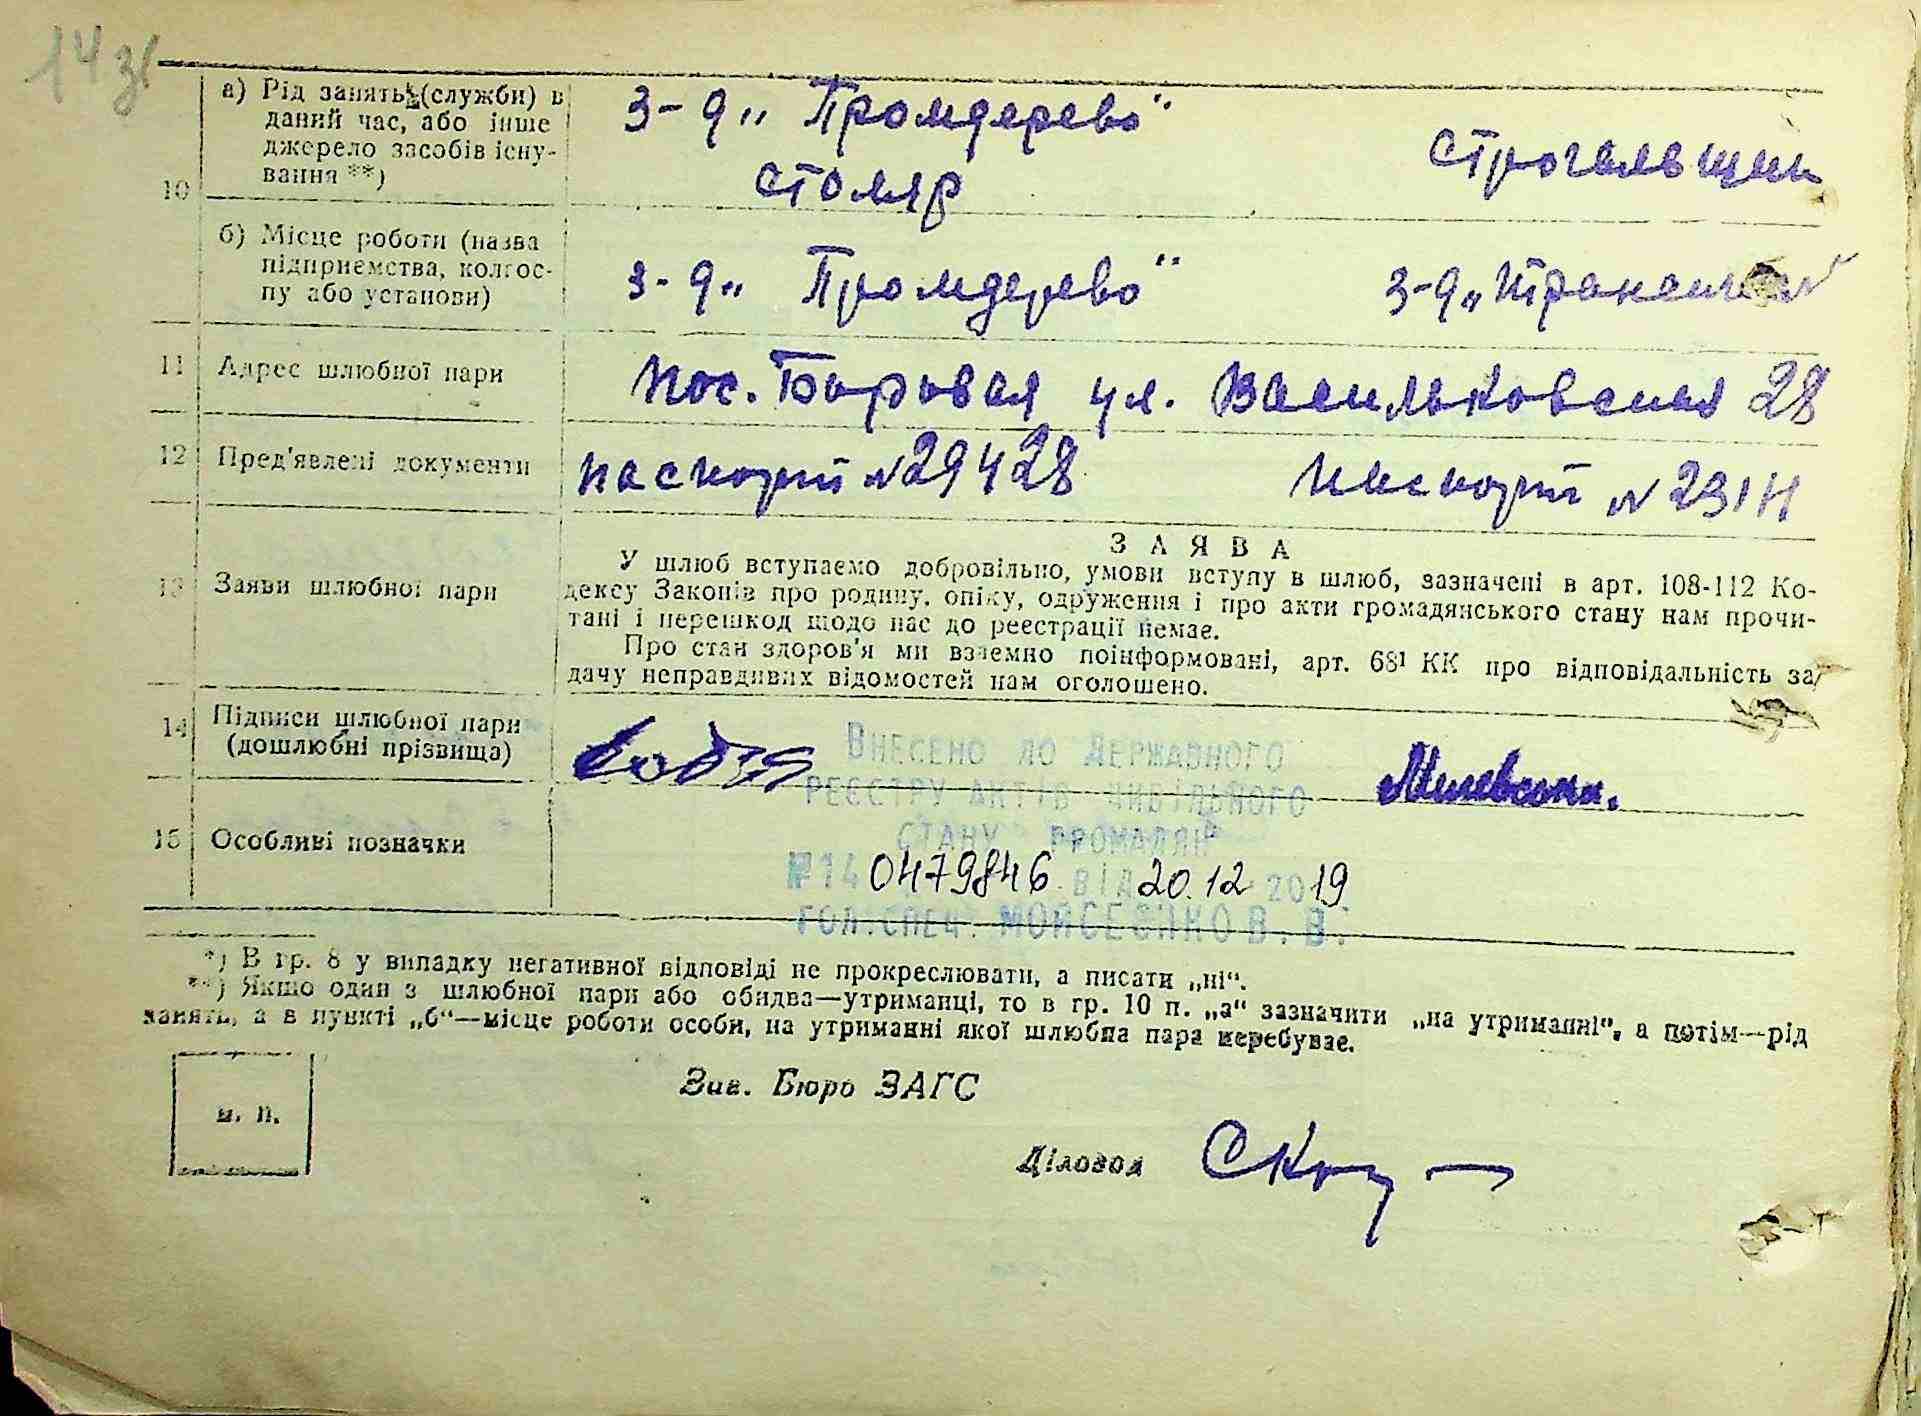 14 зв
10
а) Рід занять (служби) в
даний час, або інше
джерело засобів існу-
вання **)
З-д „Промдерево"
столяр
Строгальщик
б) Місце роботи (назва
підприємства, колгос-
пу або установи)
з-д „Промдерево"
з-д „
11 Адрес шлюбної пари
пос. Боровая ул. Васильковская 28
12 Пред'явлені документи
паспорт №29428
паспорт №
13 Заяви шлюбної пари
ЗАЯВА
У шлюб вступаємо добровільно, умови вступу в шлюб, зазначені в арт. 108-112 Ко-
дексу Законів про родину, опіку, одруження і про акти громадянського стану нам прочи-
тані і перешкод щодо нас до реєстрації немає.
Про стан здоров'я ми взаємно поінформовані, арт. 68¹ КК про відповідальність за
дачу неправдивих відомостей нам оголошено.
14 Підписи шлюбної пари
(дошлюбні прізвища)
Милевская.
15 Особливі позначки
Внесено до Державного
реєстру актів цивільного
стану громадян
№14 0479846 від 20.12 2019
Гол.спец. Мойсеєнко В.В.
*) В гр. 8 у випадку негативної відповіді не прокреслювати, а писати „ні".
**) Якщо один з шлюбної пари або обидва—утриманці, то в гр. 10 п. „а" зазначити „на утриманні", а потім—рід
занять, а в пункті „б"—місце роботи особи, на утриманні якої шлюбна пара перебуває.
м. п.
Зав. Бюро ЗАГС
Діловод